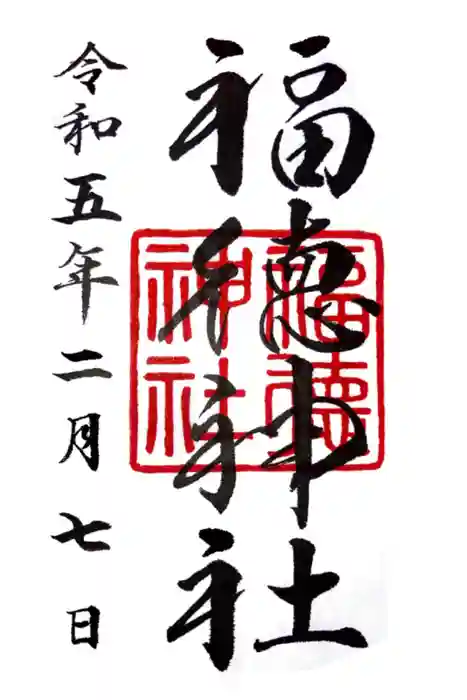 福徳神社
令和五年二月七日
福徳
神社